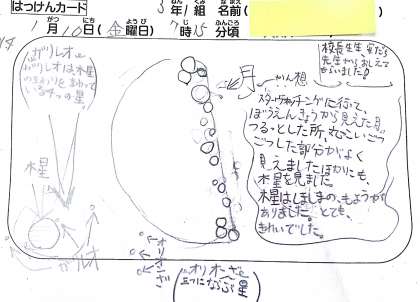 はっけんカード
3年1組 名前(
1月10日(金曜日) 7時15分頃
校長先生
先生からおしえて
もらいました!
ガリレオと
ガリレオは木星
のまわりをまわって
いる4つの星。
月
かんそ想
スターウォッチングに行って、
ぼうえんきょうから見えた月
つるっとした所、でこいごつ
ごつした部分がよく
見えましたほかにも、
木星を見ました
木星はしましまの、もようが
ありました。とても、
きれいでした。
木星
ガリレオ
オリオンざ
オリオンざ
三つにならぶ星